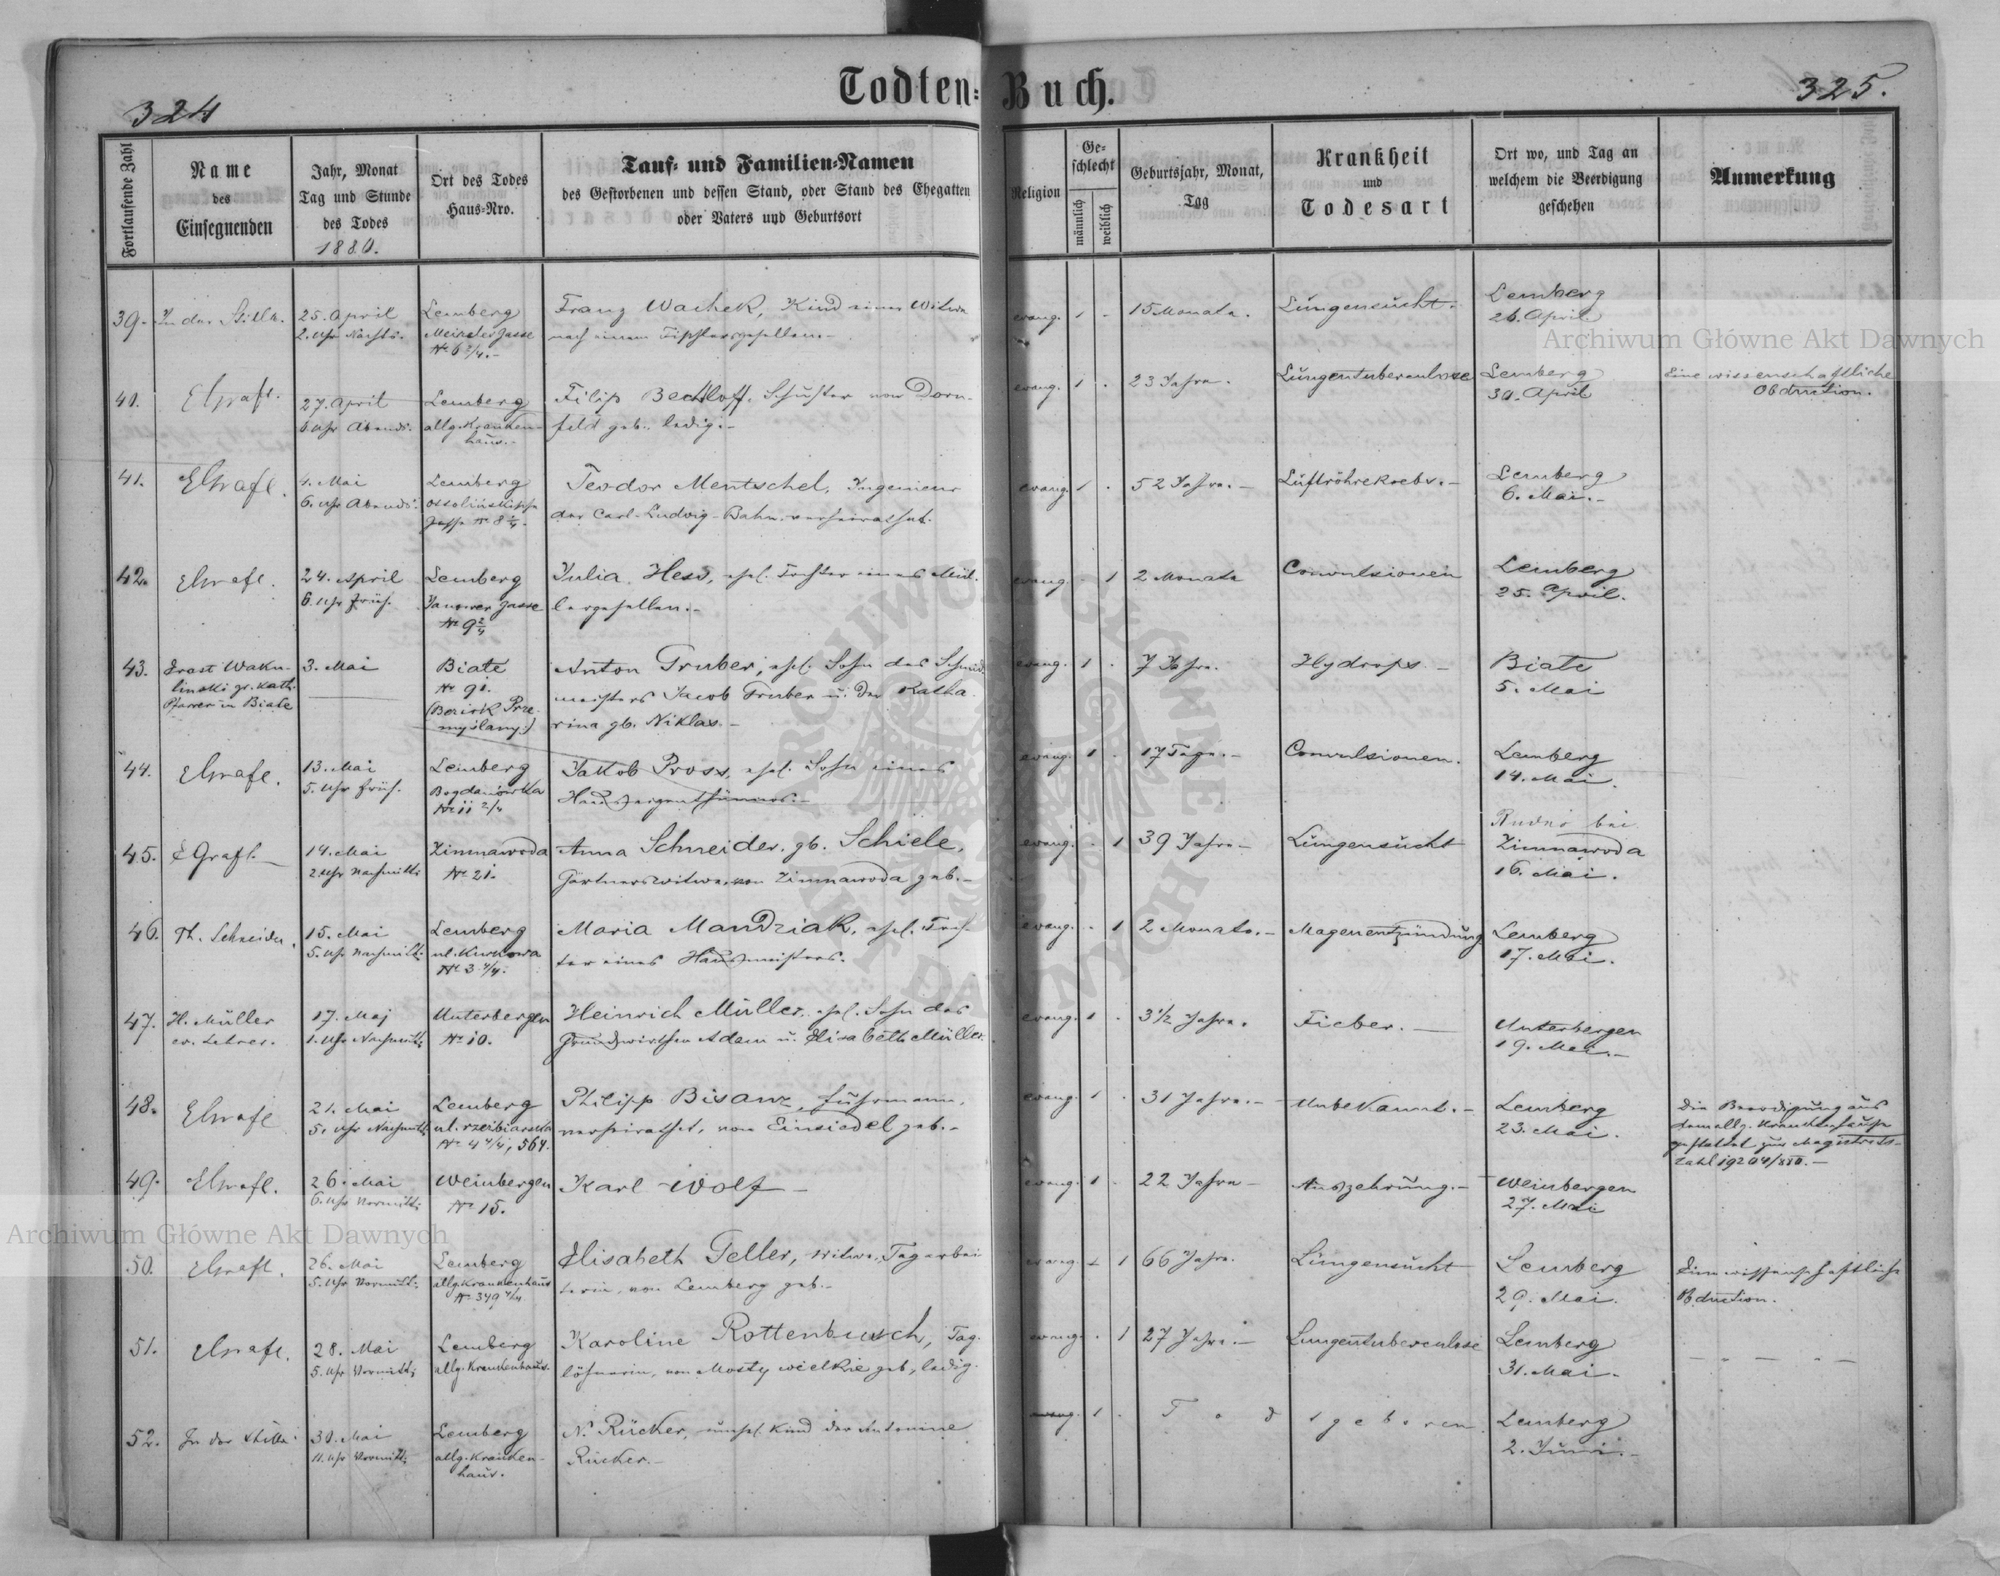 324
Todten-Buch.
325.
Fortlaufende Zahl
Name
des
Einsegnenden
Jahr, Monat
Tag und Stunde
des Todes
1880.
Ort des Todes
Haus-Nro.
Tauf- und Familien-Namen
des Gestorbenen und dessen Stand, oder Stand des Ehegatten
oder Vaters und Geburtsort
Religion
Ge-
schlecht
männlich
weiblich
Geburtsjahr, Monat,
Tag
Krankheit
und
Todesart
Ort wo, und Tag an
welchem die Beerdigung
geschehen
Anmerkung
39. In der Stille. 25. April Lemberg Franz Wachek, Kind einer Witwe evang. 1 - 15 Monate. Lungensucht. Lemberg
2. Uhr Nachts. nach einem Tischlergesellen. 26. April
EGrafl. 27. April Lemberg Filip Bechtloff, Schuster von Dorn- evang. 1 . 23 Jahre. Lungentuberculose Lemberg Eine wissenschaftliche
6 Uhr Abends. allg. Kranken- feld geb. ledig. 30. April Obduction.
haus.
41. EGrafl. 4. Mai Lemberg Teodor Mentschel, Ingenieur evang. 1 . 52 Jahre. Luftröhrekrebs. Lemberg
6. Uhr Abends. Ossolinskische der Carl-Ludwig-Bahn, verheirathet. 6. Mai.
Gasse No 8 2/4.
42. EGrafl. 24. April Lemberg Julia Hess, ehel. Tochter eines Mül- evang. - 1 2 Monate Convulsionen Lemberg
6. Uhr früh. Janower Gasse lergesellen. 25. April.
No 9 2/4
43. 3. Mai Biale Anton Gruber, ehel. Sohn des Schmid- evang. 1 . 7 Jahre. Hydrops Biale
linski gr. kath. No 91. meisters Jacob Gruber u. der Katha- 5. Mai
Pfarrer in Biale (Bezirk Prze- rina gb. Niklas.
myślany.)
44. EGrafl. 13. Mai Lemberg Jakob Pross, ehel. Sohn eines evang. 1 . 17 Tage. Convulsionen. Lemberg
5. Uhr früh. Bogdanówka Hauseigenthümers. 14. Mai.
No 11 2/4
45. EGrafl. 14. Mai Zimnawoda Anna Schneider, gb. Schiele, evang. - 1 39 Jahre Lungensucht Rudno bei
2 Uhr Nachmitt. No 21. Gärtnerswitwe, von Zimnawoda geb. Zimnawoda
16. Mai.
46. Th. Schneider. 15. Mai Lemberg Maria Mandziak, ehel. Toch- evang. - 1 2 Monate. Magenentzündung Lemberg
5. Uhr Nachmitt. ul. Kurkowa ter eines Hausmeisters. 17. Mai.
No 3 4/4.
47. H. Müller 17. Maj Unterbergen Heinrich Müller, ehel. Sohn des evang. 1 . 3 1/2 Jahre. Fieber. Unterbergen
ev. Lehrer. 1. Uhr Nachmitt. No 10. Grundwirthen Adam u. Elisabeth Müller. 19. Mai.
48. EGrafl 21. Mai Lemberg Philipp Bisanz, Fuhrmann, evang. 1 . 31 Jahre. Unbekannt. Lemberg Die Beerdigung aus
5. Uhr Nachmitt. No 4 4/4, 564. verheirathet, von Einsiedel geb. 23. Mai. dem allg. Krankenhause
gestattet zur Magistrats-
zahl 19204/880.
49. EGrafl. 26. Mai Weinbergen Karl Wolf evang. 1 . 22 Jahre Auszehrung. Weinbergen
6. Uhr Vormitt. No 15. 27. Mai
50. EGrafl. 26. Mai Lemberg Elisabeth Geller, Witwe, Tagarbei- evang. - 1 66 Jahre. Lungensucht Lemberg Eine wissenschaftliche
5. Uhr Vormitt. allg. Krankenhaus terin, von Lemberg geb. 29. Mai. Obduction.
No 349 4/4
51. EGrafl. 28. Mai Lemberg Karoline Rottenbusch, Tag- evang. . 1 27 Jahre. Lungentuberculose Lemberg
5. Uhr Vormitt. allg. Krankenhaus. löhnerin, von Mosty wielkie geb, ledig. 31. Mai.
52. In der Stille. 30. Mai Lemberg N. Rücker, unehel. Kind der Antonine evang. 1 . Todtgeboren. Lemberg
11. Uhr Vormitt. allg. Kranken- Rücker. 2. Juni.
haus.
Archiwum Główne Akt Dawnych
Archiwum Główne Akt Dawnych
ARCHIWUM GŁÓWNE AKT DAWNYCH